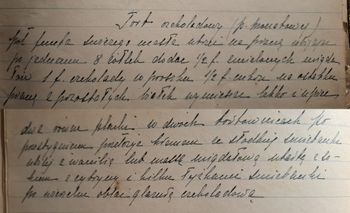 Tort czekoladowy (p. Monetowej)
Pół funta świeżego masła utrzeć na pianę wbijając
po jednemu 8 żółtek dodać 1/2 f. mielonych migda
łów 1 f. czekolady w proszku 1/2 f. cukru na ostatku
pianę z pozostałych białek wymieszać lekko i upiec
dwa równe placki w dwóch tortownicach Po
przestygnięciu przełożyć kremem ze słodkiej śmietanki
ubitej z wanilią lub masą migdałową utartą z so-
kiem z cytryny i kilku łyżkami śmietanki
po wierzchu oblać glazurą czekoladową